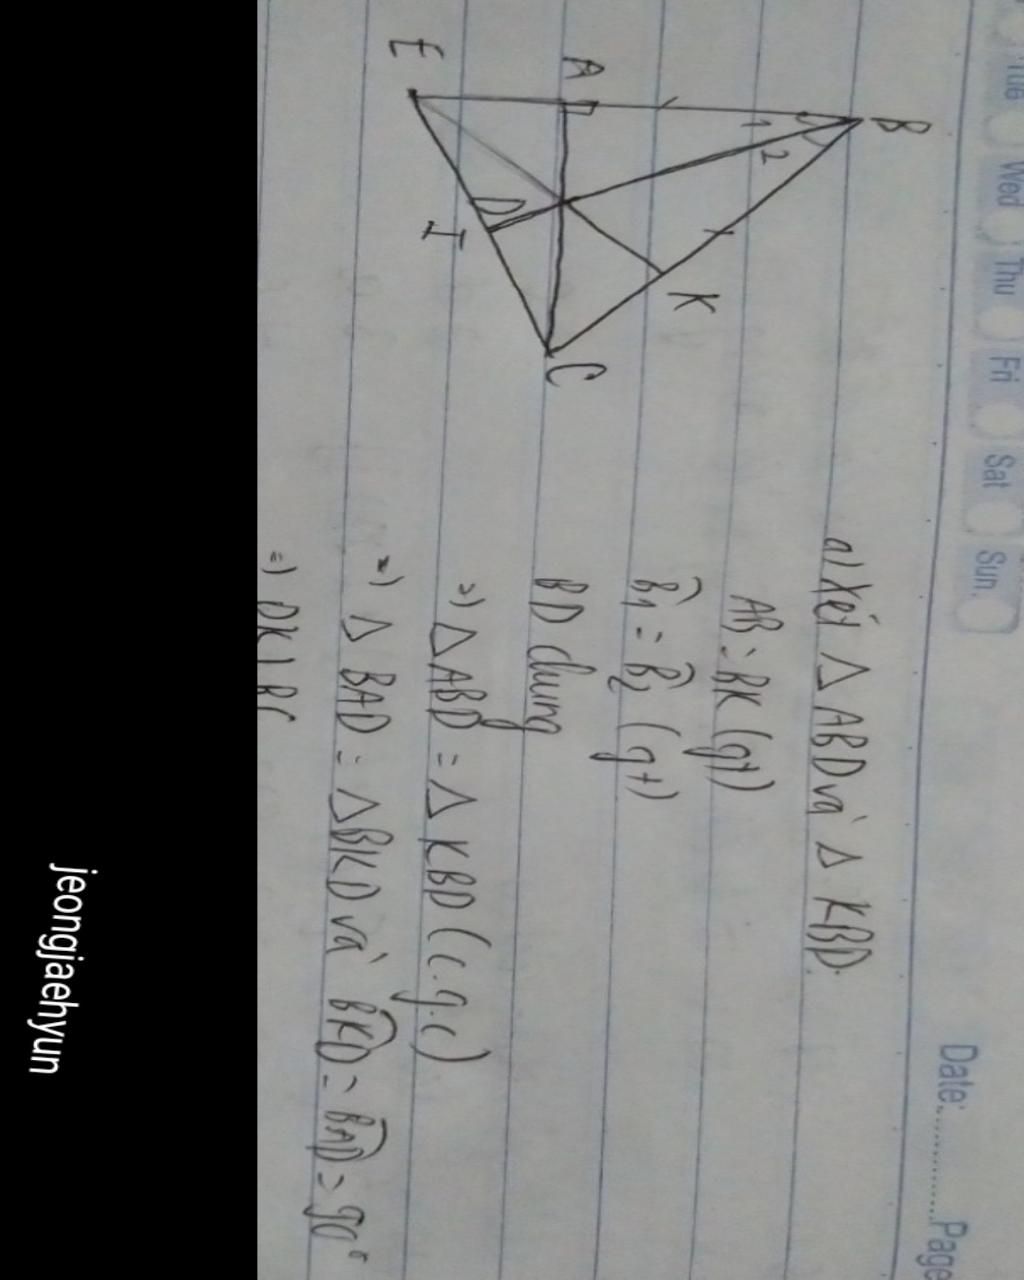 Tue Wed Thu Fri Sat Sun
Date: Page
B
1 2
A
K
E
D
I
C
a) Xét △ ABD và △ KBD
AB = BK (gt)
B̂1 = B̂2 (gt)
BD chung
=) △ABD = △ KBD (c.g.c)
=) △ BAD = △BKD và BKD = BAD = 90°
=) DK ⊥ BC
jeongjaehyun